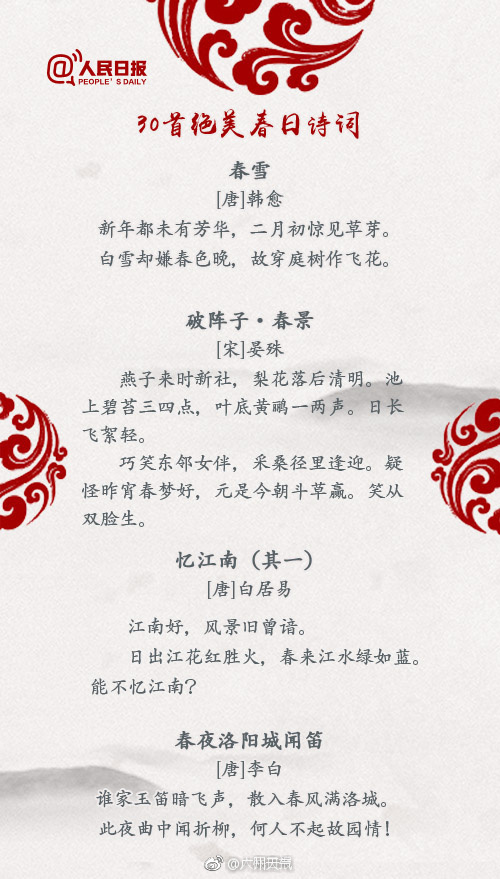 人民日报
PEOPLE'S DAILY
30首绝美春日诗词
春雪
[唐]韩愈
新年都未有芳华，二月初惊见草芽。
白雪却嫌春色晚，故穿庭树作飞花。
破阵子·春景
[宋]晏殊
燕子来时新社，梨花落后清明。池
上碧苔三四点，叶底黄鹂一两声。日长
飞絮轻。
巧笑东邻女伴，采桑径里逢迎。疑
怪昨宵春梦好，元是今朝斗草赢。笑从
双脸生。
忆江南（其一）
[唐]白居易
江南好，风景旧曾谙。
日出江花红胜火，春来江水绿如蓝。
能不忆江南？
春夜洛阳城闻笛
[唐]李白
谁家玉笛暗飞声，散入春风满洛城。
此夜曲中闻折柳，何人不起故园情！